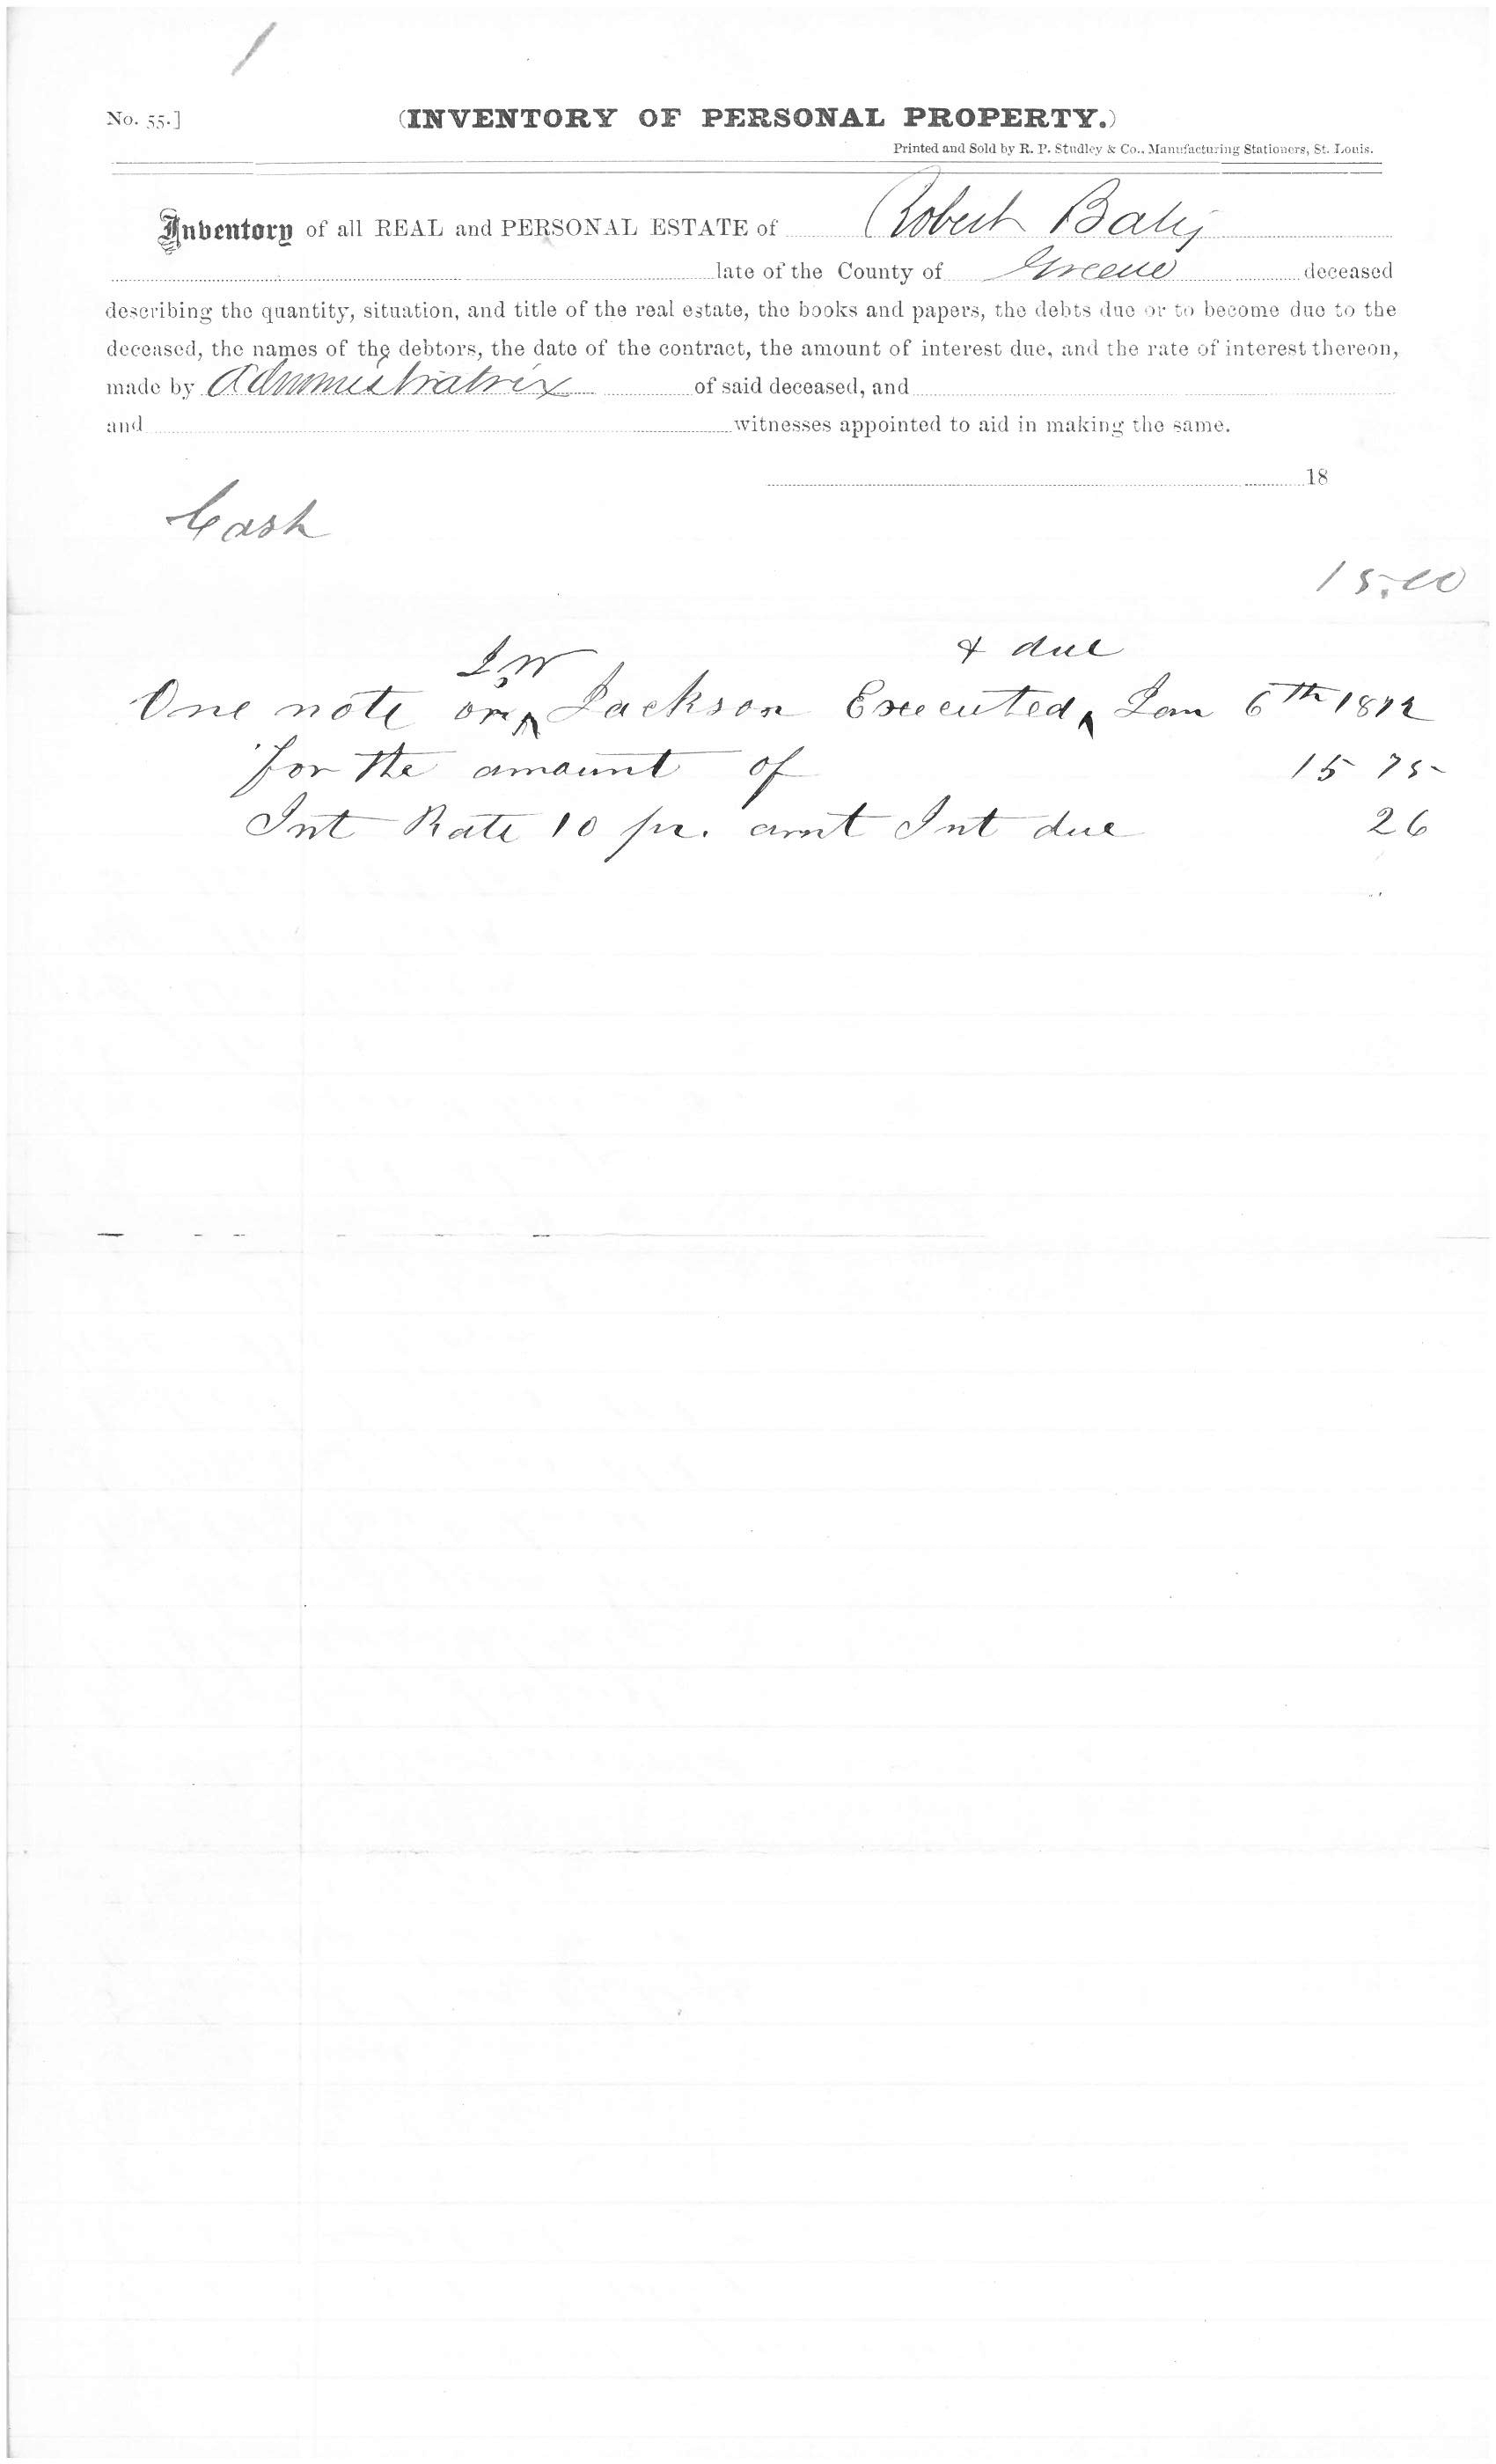 1
No. 55.]
(INVENTORY OF PERSONAL PROPERTY.)
Printed and Sold by R. P. Studley & Co., Manufacturing Stationers, St. Louis.
Inventory of all REAL and PERSONAL ESTATE of Robert
late of the County of Greene deceased
describing the quantity, situation, and title of the real estate, the books and papers, the debts due or to become due to the
deceased, the names of the debtors, the date of the contract, the amount of interest due, and the rate of interest thereon,
made by Administratrix of said deceased, and
and witnesses appointed to aid in making the same.
18
Cash
15.00
& due
One note on Jackson Executed Jan 6th 1872
for the amount of 15 75
Int Rate 10 pr. amt Int due 26